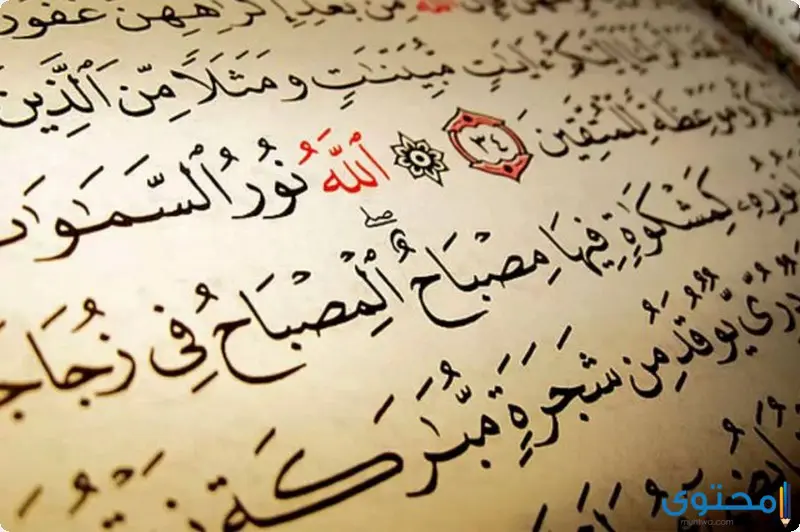 ٱللَّهِ مِنۢ بَعْدِ إِكْرَٰهِهِنَّ غَفُورٌ
إِلَيْكُمْ ءَايَٰتٍ مُّبَيِّنَٰتٍ وَمَثَلًا مِّنَ ٱلَّذِينَ
وَمَوْعِظَةً لِّلْمُتَّقِينَ ٣٤ ۞ ٱللَّهُ نُورُ ٱلسَّمَٰوَٰتِ
نُورِهِۦ كَمِشْكَوٰةٍ فِيهَا مِصْبَاحٌ ۖ ٱلْمِصْبَاحُ فِى زُجَاجَ
دُرِّىٌّ يُوقَدُ مِن شَجَرَةٍ مُّبَٰرَكَةٍ
محتوى
muntwa.com